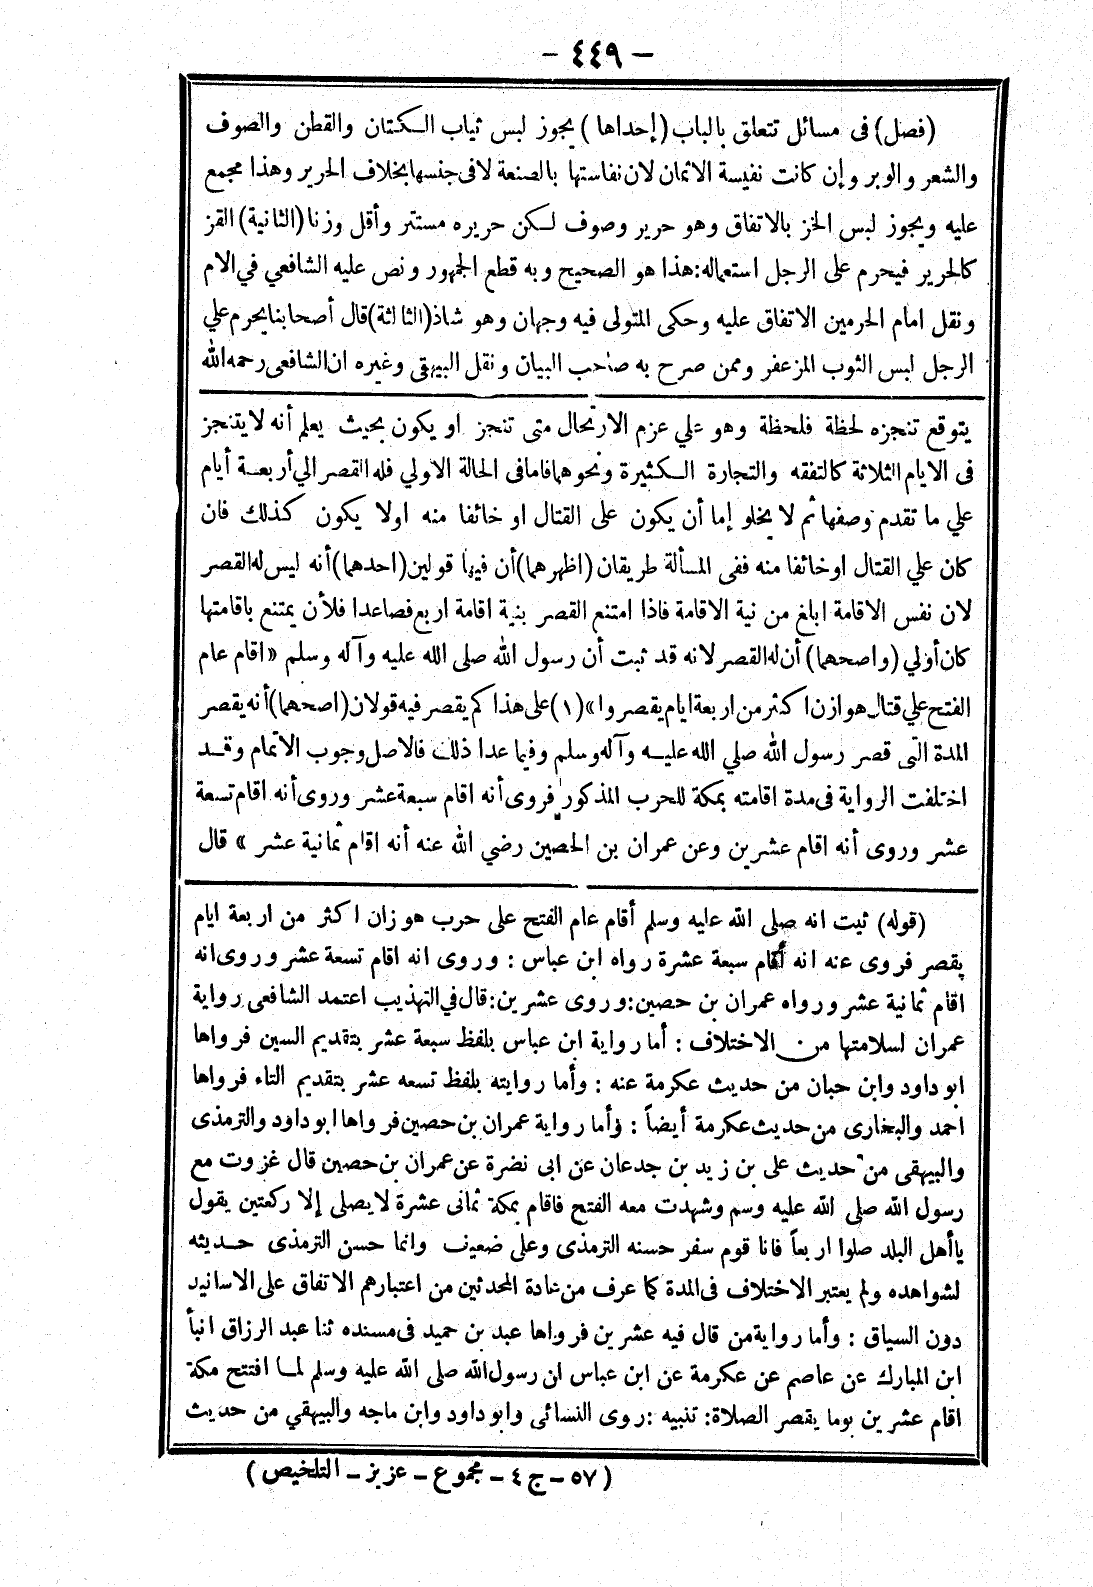 — ٤٤٩ —
(فصل) فى مسائل تتعلق بالباب (إحداها) يجوز لبس ثياب الكتان والقطن والصوف
والشعر والوبر وإن كانت نفيسة الاثمان لان نفاستها بالصنعة لا فى جنسها بخلاف الحرير وهذا مجمع
عليه ويجوز لبس الخز بالاتفاق وهو حرير وصوف لكن حريره مستتر وأقل وزنا (الثانية) القز
كالحرير فيحرم على الرجل استعماله: هذا هو الصحيح وبه قطع الجمهور ونص عليه الشافعي في الام
ونقل امام الحرمين الاتفاق عليه وحكى المتولى فيه وجهان وهو شاذ (الثالثة) قال أصحابنا يحرم علي
الرجل لبس الثوب المزعفر وممن صرح به صاحب البيان ونقل البيهقى وغيره ان الشافعى رحمه الله
يتوقع تنجزه لحظة فلحظة وهو علي عزم الارتحال متى تنجز او يكون بحيث يعلم أنه لا يتنجز
فى الايام الثلاثة كالتفقه والتجارة الكثيرة ونحوهما فاما فى الحالة الاولي فله القصر الي أربعة أيام
علي ما تقدم وصفها ثم لا يخلو إما أن يكون على القتال او خائفا منه اولا يكون كذلك فان
كان علي القتال او خائفا منه ففى المسألة طريقان (اظهرهما) أن فيها قولين (احدهما) أنه ليس له القصر
لان نفس الاقامة ابلغ من نية الاقامة فاذا امتنع القصر بنية اقامة اربع فصاعدا فلأن يمتنع باقامتها
كان أولي (واصحهما) أن له القصر لانه قد ثبت أن رسول الله صلى الله عليه وآله وسلم «اقام عام
الفتح علي قتال هوازن اكثر من اربعة ايام يقصر وا» (١) على هذا كم يقصر فيه قولان (اصحهما) أنه يقصر
المدة التى قصر رسول الله صلي الله عليه وآله وسلم وفيما عدا ذلك فالاصل وجوب الاتمام وقد
اختلفت الرواية فى مدة اقامته بمكة للحرب المذكور فروى أنه اقام سبعة عشر وروى أنه اقام تسعة
عشر وروى أنه اقام عشرين وعن عمران بن الحصين رضي الله عنه أنه اقام ثمانية عشر » قال
(قوله) ثبت انه صلى الله عليه وسلم أقام عام الفتح على حرب هوزان اكثر من اربعة ايام
يقصر فروى عنه انه أقام سبعة عشرة رواه ابن عباس : وروى انه اقام تسعة عشر وروى انه
اقام ثمانية عشر ورواه عمران بن حصين: وروى عشرين: قال في التهذيب اعتمد الشافعى رواية
عمران لسلامتها من الاختلاف : أما رواية ابن عباس بلفظ سبعة عشر بتقديم السين فرواها
ابو داود وابن حبان من حديث عكرمة عنه : وأما روايته بلفظ تسعه عشر بتقديم التاء فرواها
احمد والبخارى من حديث عكرمة أيضاً : وأما رواية عمران بن حصين فرواها ابو داود والترمذى
والبيهقى من حديث على بن زيد بن جدعان عن ابى نضرة عن عمران بن حصين قال غزوت مع
رسول الله صلى الله عليه وسم وشهدت معه الفتح فاقام بمكة ثمانى عشرة لا يصلى إلا ركعتين يقول
ياأهل البلد صلوا اربعاً فانا قوم سفر حسنه الترمذى وعلى ضعيف وانما حسن الترمذى حديثه
لشواهده ولم يعتبر الاختلاف فى المدة كما عرف من عادة المحدثين من اعتبارهم الاتفاق على الاسانيد
دون السياق : وأما رواية من قال فيه عشرين فرواها عبد بن حميد فى مسنده ثنا عبد الرزاق انبأ
ابن المبارك عن عاصم عن عكرمة عن ابن عباس ان رسول الله صلى الله عليه وسلم لما افتتح مكة
اقام عشرين يوما يقصر الصلاة: تنبيه : روى النسائى وابو داود وابن ماجه والبيهقي من حديث
(٥٧ — ج ٤ — مجموع — عزيز — التلخيص)